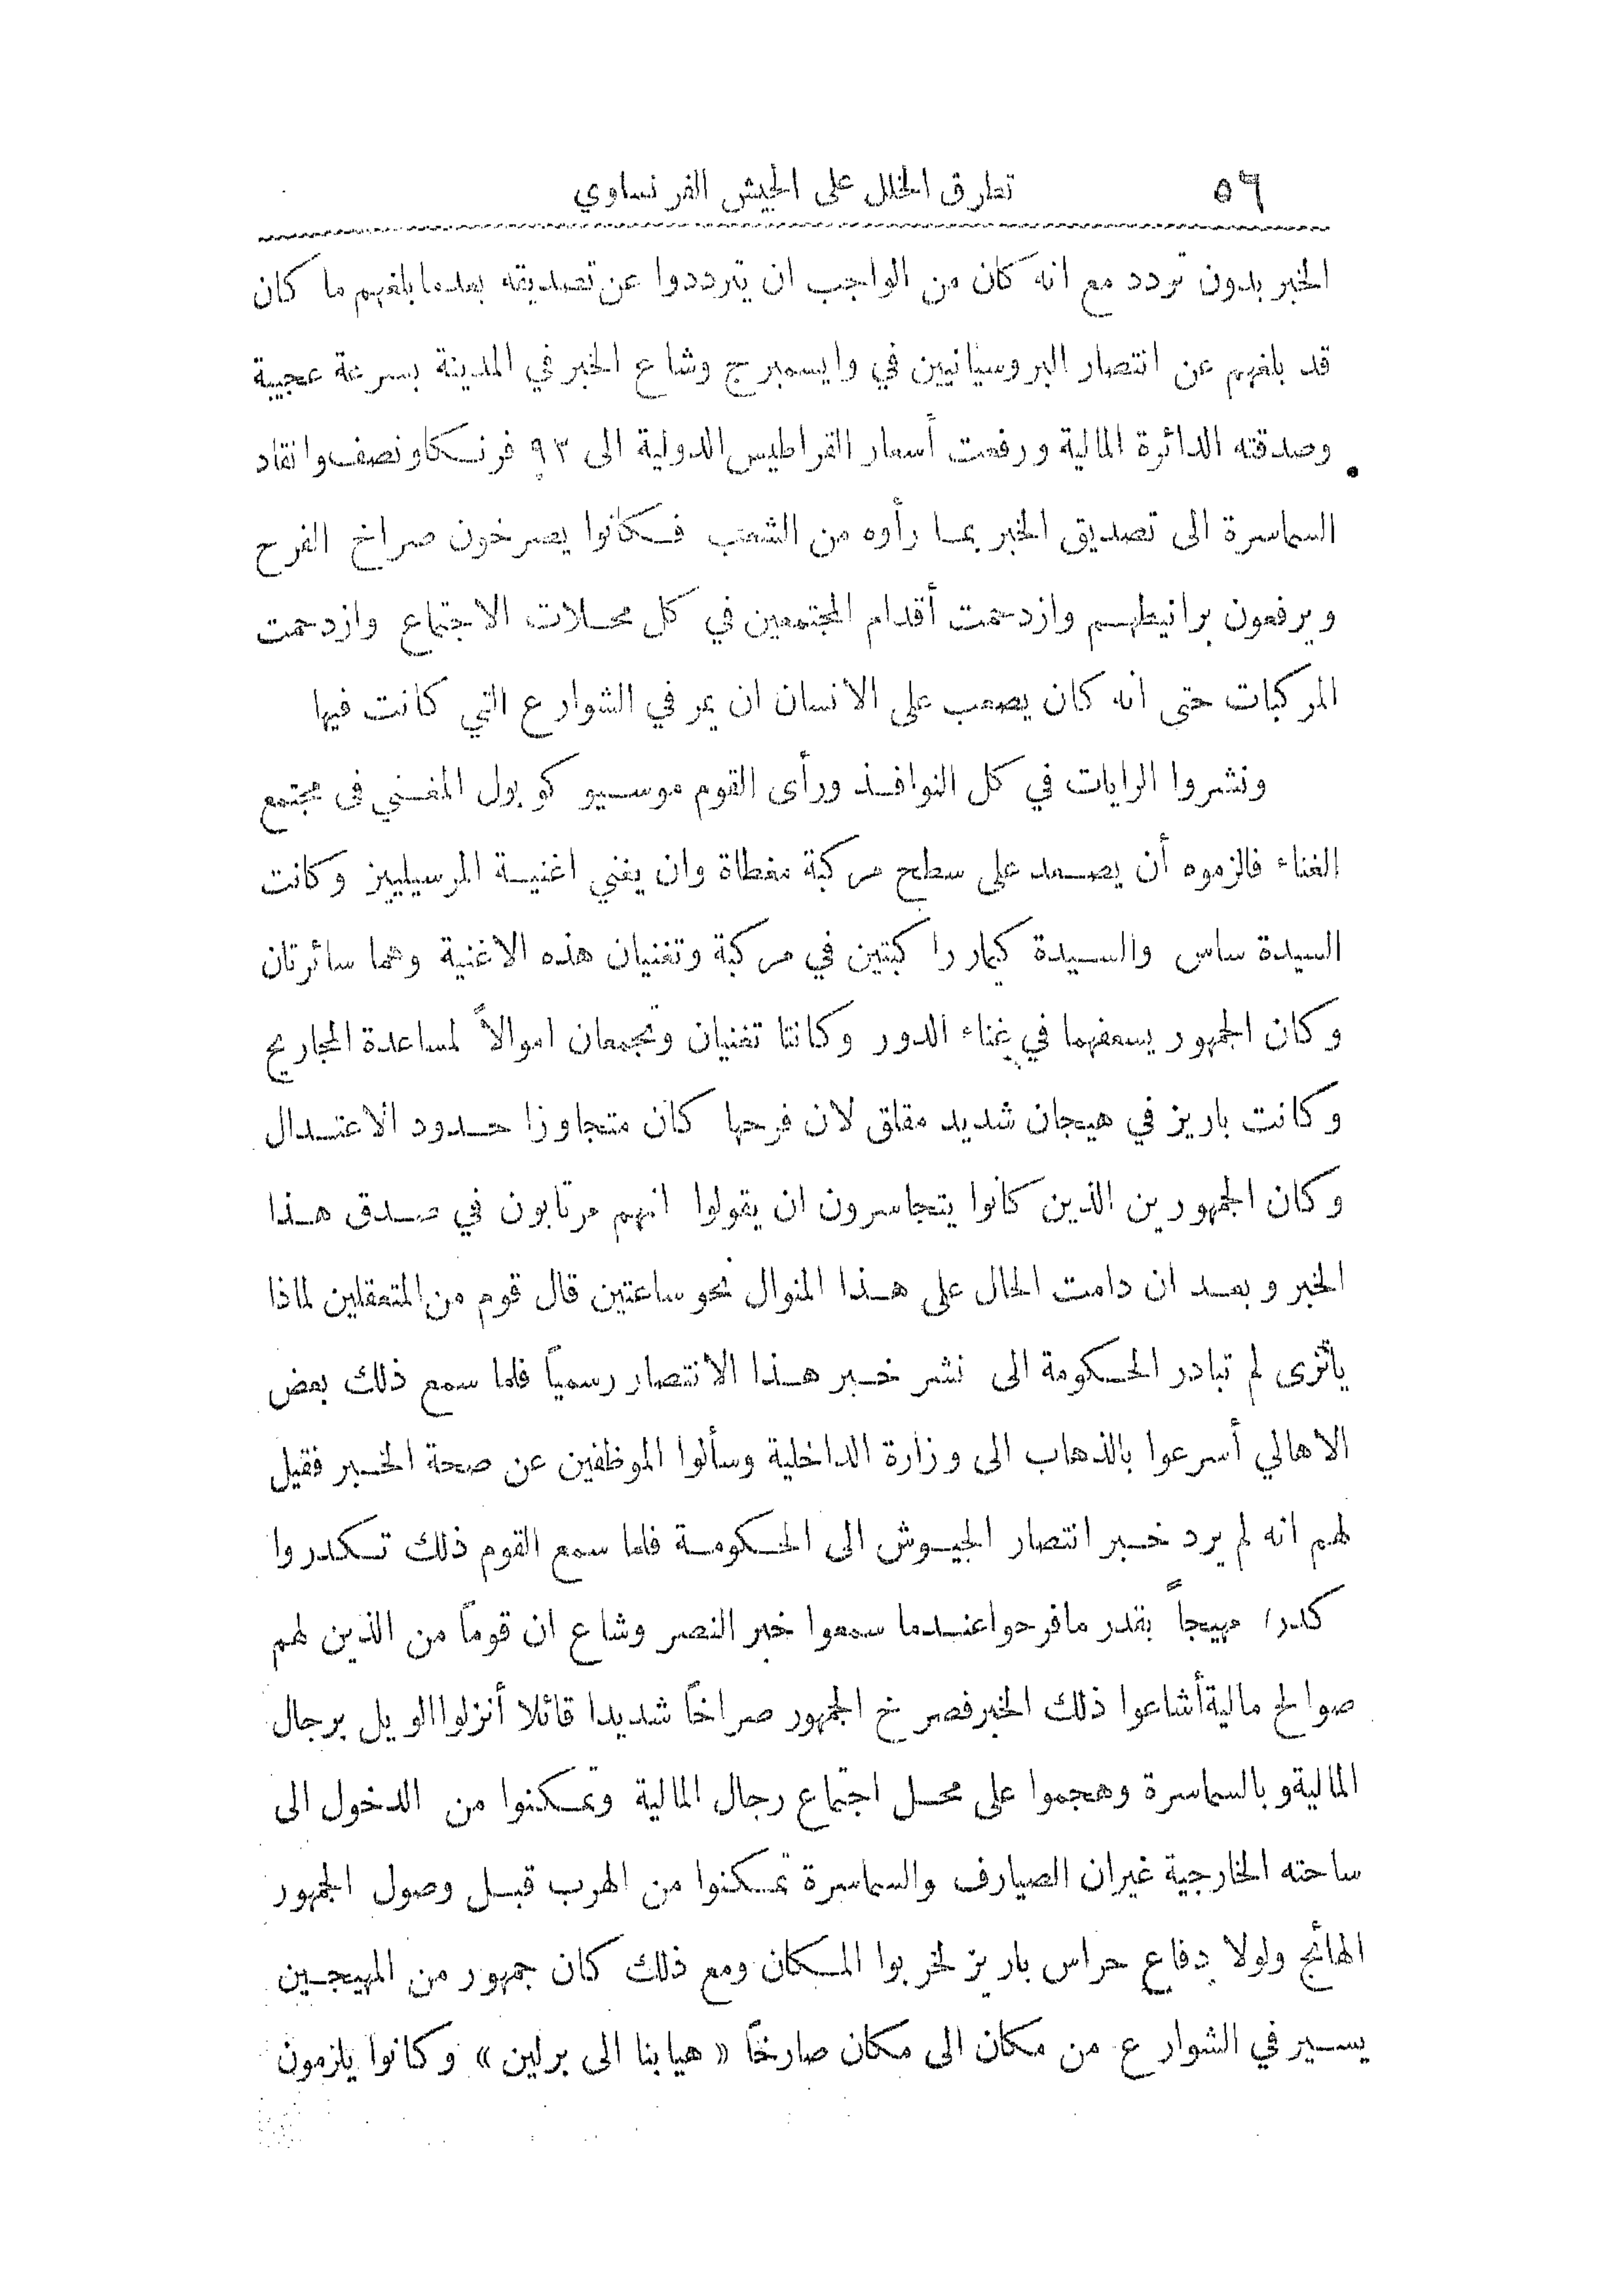 ٥٦ تطرق الخلل على الجيش الفرنساوي
الخبر بدون تردد مع انه كان من الواجب ان يترددوا عن تصديقه بعدما بلغهم ما كان
قد بلغهم عن انتصار البروسيانيين في وايسمبرج وشاع الخبر في المدينة بسرعة عجيبة
وصدقته الدائرة المالية ورفعت أسعار القراطيس الدولية الى ٩٣ فرنكا ونصف وانقاد
السماسرة الى تصديق الخبر بما رأوه من الشعب فكانوا يصرخون صراخ الفرح
ويرفعون برانيطهم وازدحمت أقدام المجتمعين في كل محلات الاجتماع وازدحمت
المركبات حتى انه كان يصعب على الانسان ان يمر في الشوارع التي كانت فيها
ونشروا الرايات في كل النوافذ ورأى القوم موسيو كوبول المغني في مجتمع
الغناء فالزموه أن يصعد على سطح مركبة مغطاة وان يغني اغنية المرسيلييز وكانت
السيدة ساس والسيدة كيمار را كبتين في مركبة وتغنيان هذه الاغنية وهما سائرتان
وكان الجمهور يسعفهما في غناء الدور وكانتا تغنيان وتجمعان اموالاً لمساعدة المجاريح
وكانت باريز في هيجان شديد مقلق لان فرحها كان متجاوزا حدود الاعتدال
وكان الجمهورين الذين كانوا يتجاسرون ان يقولوا انهم مرتابون في صدق هذا
الخبر وبعد ان دامت الحال على هذا المنوال نحو ساعتين قال قوم من المتعقلين لماذا
ياترى لم تبادر الحكومة الى نشر خبر هذا الانتصار رسمياً فلما سمع ذلك بعض
الاهالي أسرعوا بالذهاب الى وزارة الداخلية وسألوا الموظفين عن صحة الخبر فقيل
لهم انه لم يرد خبر انتصار الجيوش الى الحكومة فلما سمع القوم ذلك تكدروا
كدرا مهيجاً بقدر مافرحوا عندما سمعوا خبر النصر وشاع ان قوماً من الذين لهم
صوالح مالية أشاعوا ذلك الخبر فصرخ الجمهور صراخاً شديدا قائلا أنزلوا الويل برجال
المالية وبالسماسرة وهجموا على محل اجتماع رجال المالية وتمكنوا من الدخول الى
ساحته الخارجية غيران الصيارف والسماسرة تمكنوا من الهرب قبل وصول الجمهور
الهائج ولولا دفاع حراس باريز لخربوا المكان ومع ذلك كان جمهور من المهيجين
يسير في الشوارع من مكان الى مكان صارخاً « هيا بنا الى برلين » وكانوا يلزمون